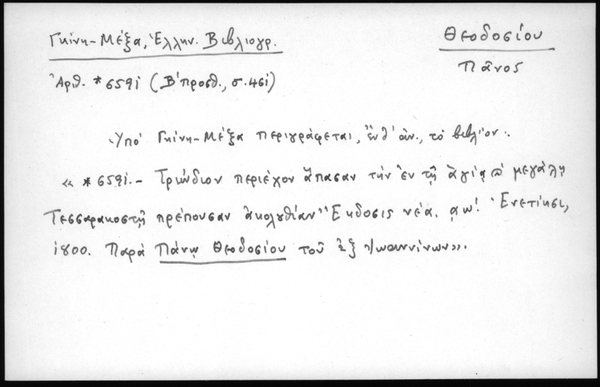 Γκίνη-Μέξα, Ἑλλην. Βιβλιογρ.
Θεοδοσίου
Πᾶνος
Ἀριθ. *659i (Β' προσθ., σ. 46i)
Ὑπὸ Γκίνη-Μέξα περιγράφεται, ἔνθ' ἀν., τὸ βιβλίον:
« *659i.- Τριώδιον περιέχον ἅπασαν τὴν ἐν τῇ ἁγίᾳ μεγάλῃ
Τεσσαρακοστῇ πρέπουσαν ἀκολουθίαν" Ἔκδοσις νέα. αω'! Ἐνετίησι,
1800. Παρὰ Πάνῳ Θεοδοσίου τοῦ ἐξ Ἰωαννίνων».